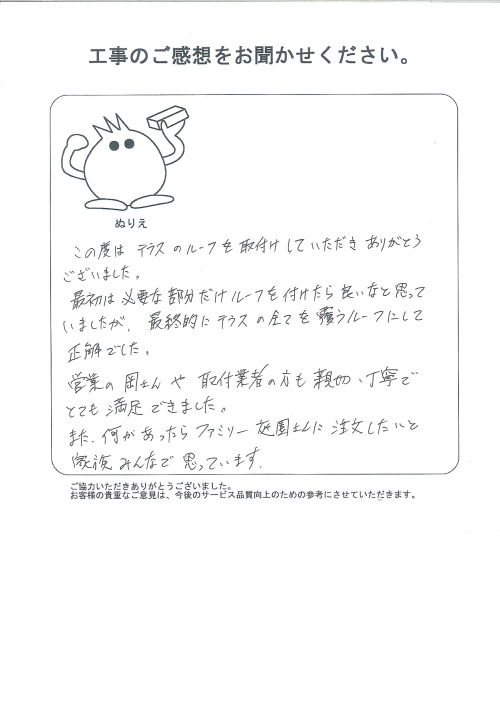 工事のご感想をお聞かせください。
ぬりえ
この度は テラスのルーフを取付けしていただきありがとう
ございました。
最初は必要な部分だけルーフを付けたら良いなと思って
いましたが、最終的にテラスの全てを覆うルーフにして
正解でした。
営業の岡さんや取付業者の方も親切、丁寧で
とても満足できました。
また、何かあったらファミリー庭園さんに注文したいと
家族みんなで思っています。
ご協力いただきありがとうございました。
お客様の貴重なご意見は、今後のサービス品質向上のための参考にさせていただきます。